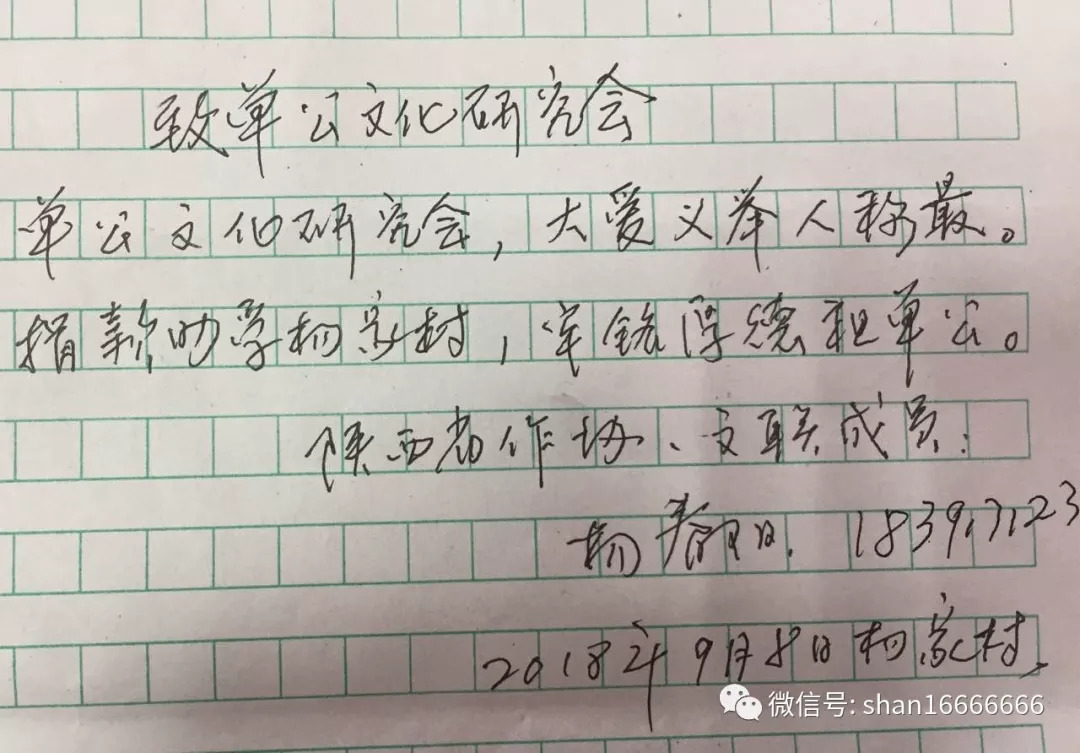 致单公文化研究会
单公文化研究会，大爱义举人称最。
捐款助学杨家村，牢铭厚德祖单公。
陕西省作协、文联成员：
杨春 18391723
2018年9月8日杨家村
微信号: shan16666666